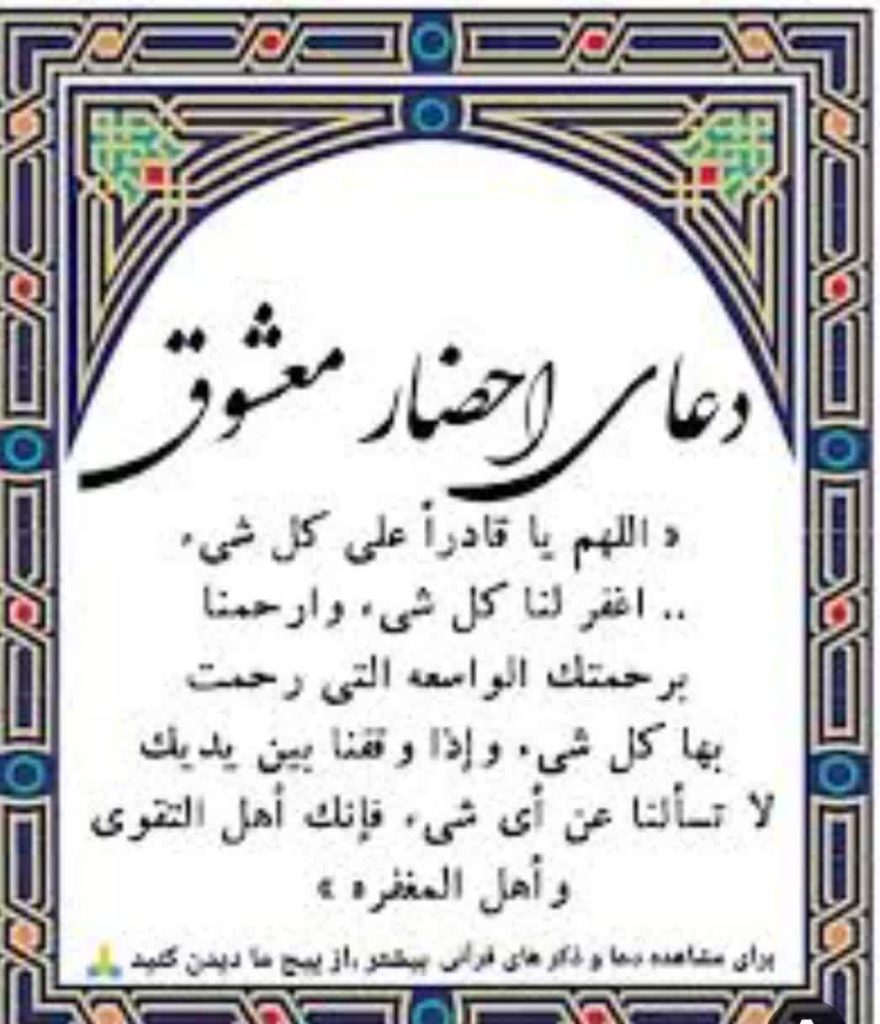 دعای احضار معشوق
« اللهم يا قادراً على كل شىء
.. اغفر لنا كل شىء وارحمنا
برحمتك الواسعه التى رحمت
بها كل شىء وإذا وقفنا بين يديك
لا تسألنا عن أى شىء فإنك أهل التقوى
وأهل المغفره »
برای مشاهده دعا و ذکر های قرآنی بیشتر ،از پیج ما دیدن کنید 🙏